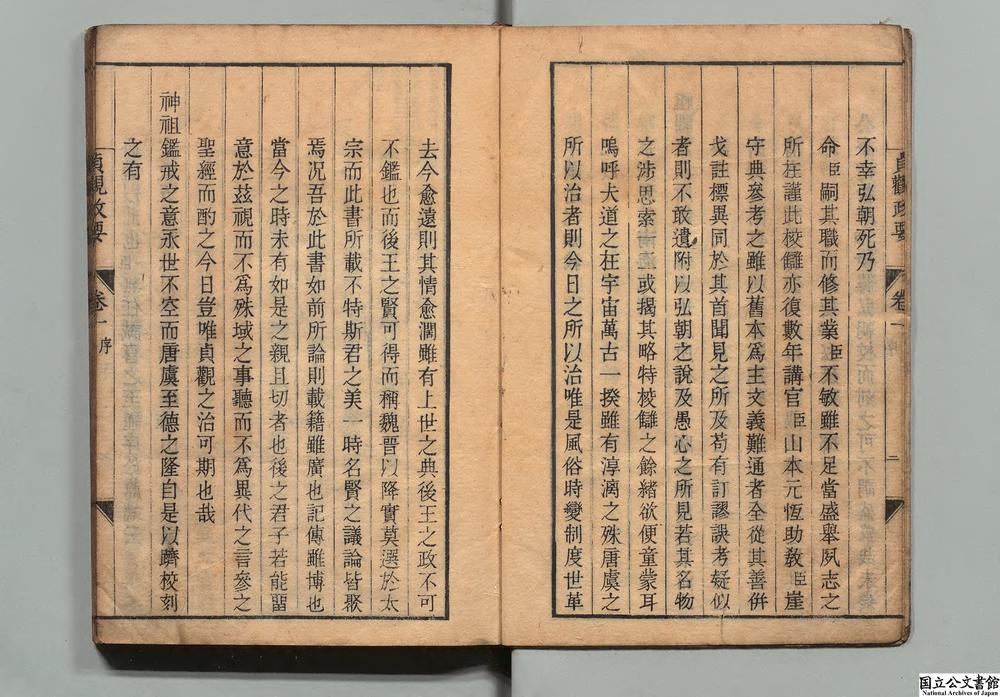 不幸弘朝死乃
命臣嗣其職而修其業臣不敏雖不足當盛舉夙志之
所在謹此校讎亦復數年講官臣山本元恆助教臣崖
守典參考之雖以舊本爲主文義難通者全從其善併
戈註標異同於其首聞見之所及苟有訂謬誤考疑似
者則不敢遺附以弘朝之說及愚心之所見若其名物
之涉思索或揭其略特校讎之餘緒欲便童蒙耳
嗚呼夫道之在宇宙萬古一揆雖有淳漓之殊唐虞之
所以治者則今日之所以治唯是風俗時變制度世革
貞觀政要 卷一 序 二
去今愈遠則其情愈濶雖有上世之典後王之政不可
不鑑也而後王之賢可得而稱魏晉以降實莫選於太
宗而此書所載不特斯君之美一時名賢之議論皆聚
焉况吾於此書如前所論則載籍雖廣也記傳雖博也
當今之時未有如是之親且切者也後之君子若能留
意於茲視而不爲殊域之事聽而不爲異代之言參之
聖經而酌之今日豈唯貞觀之治可期也哉
神祖鑑戒之意永世不空而唐虞至德之隆自是以躋校刻
之有
貞觀政要 卷一 序
国立公文書館
National Archives of Japan